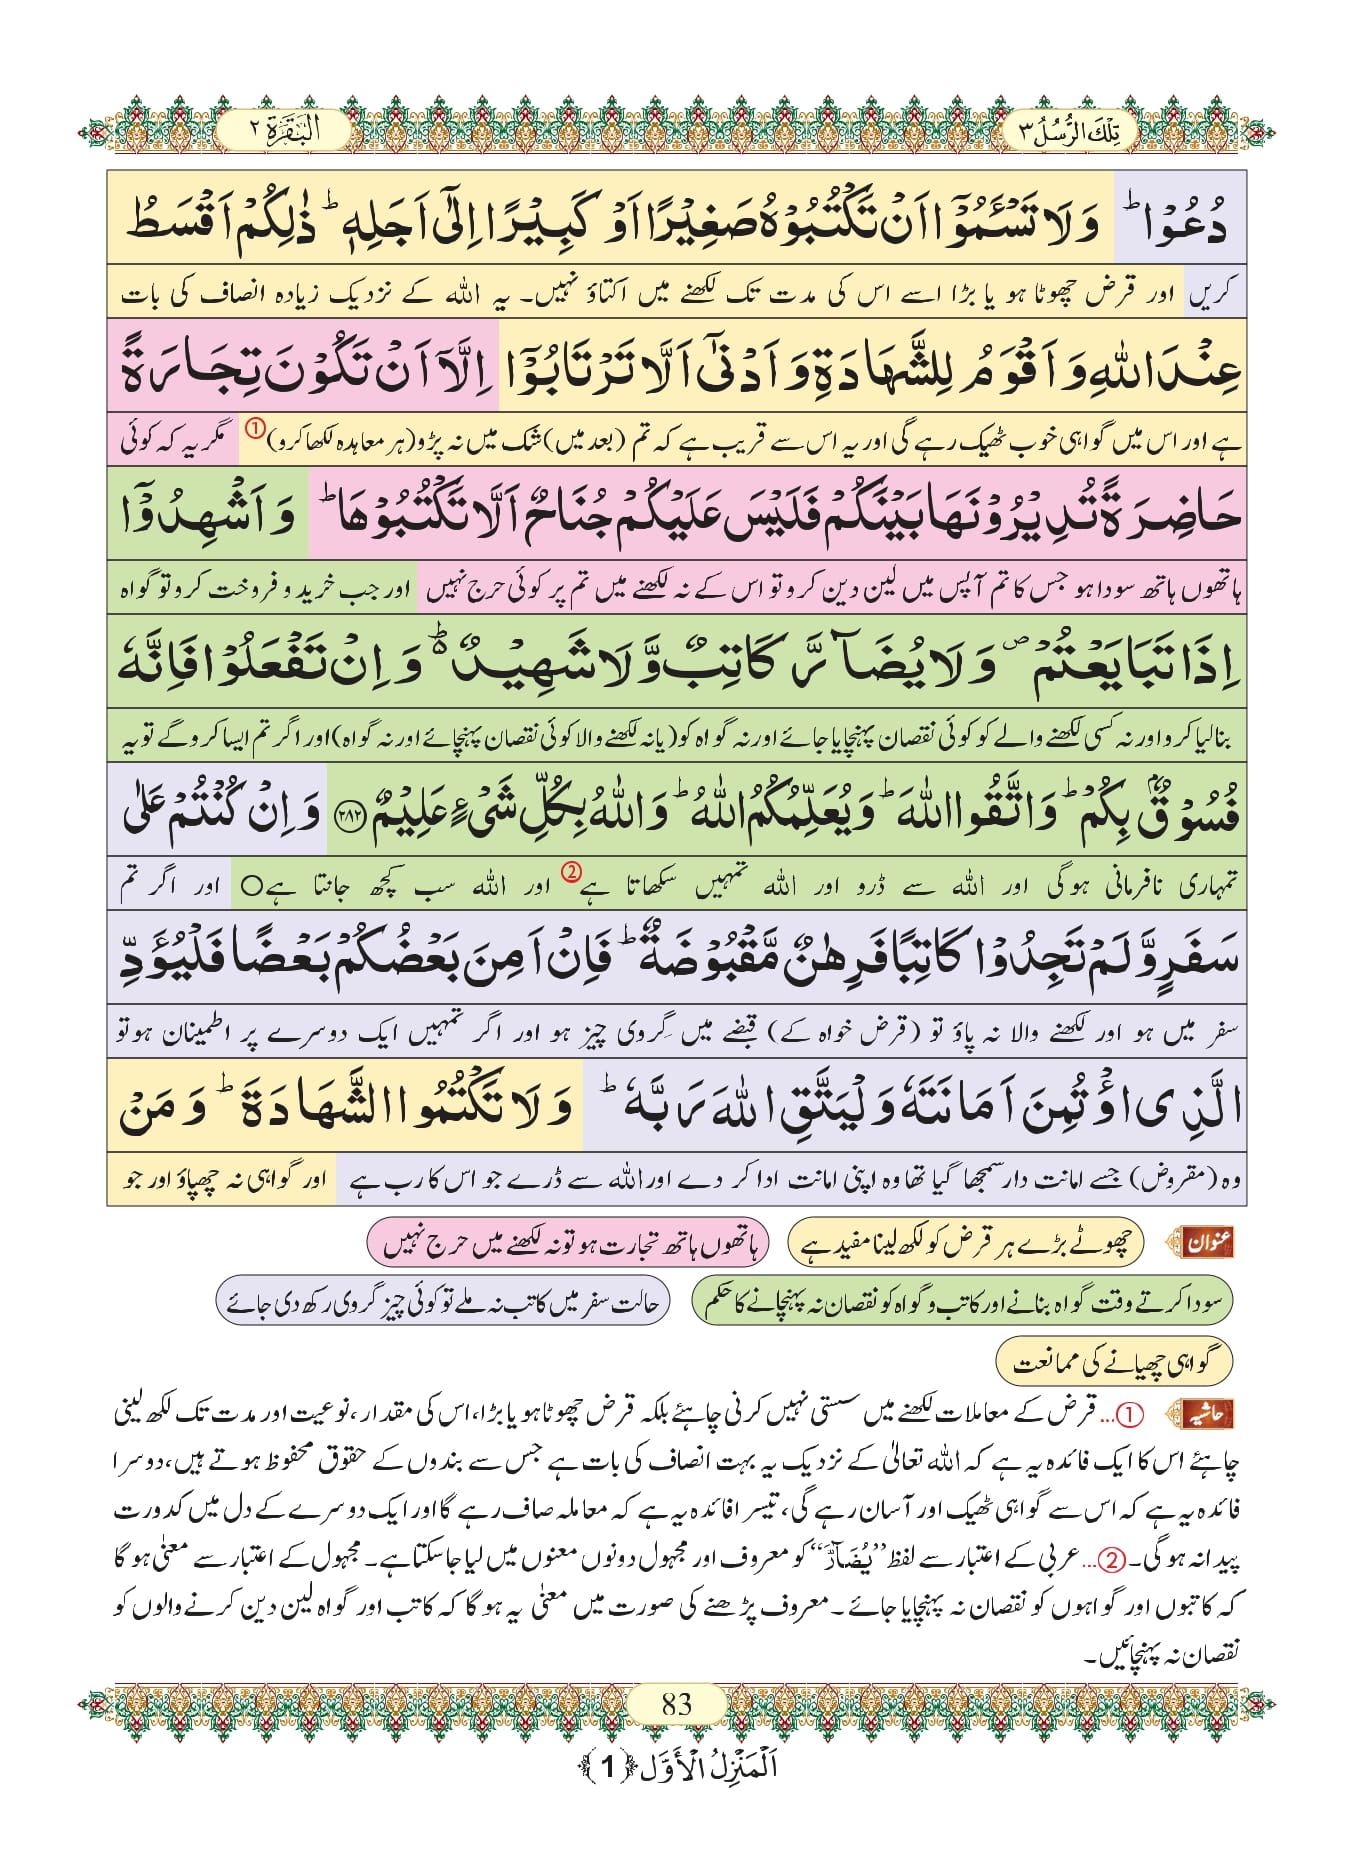 تِلْكَ الرُّسُلُ ٣
البَقَرَة ٢
دُعُوْا ؕ وَ لَا تَسْـَٔمُوْۤا اَنْ تَكْتُبُوْهُ صَغِیْرًا اَوْ كَبِیْرًا اِلٰۤى اَجَلِهٖ ؕ ذٰلِكُمْ اَقْسَطُ
کریں اور قرض چھوٹا ہو یا بڑا اسے اس کی مدت تک لکھنے میں اکتاؤ نہیں۔ یہ اللہ کے نزدیک زیادہ انصاف کی بات
عِنْدَ اللّٰهِ وَ اَقْوَمُ لِلشَّهَادَةِ وَ اَدْنٰۤى اَلَّا تَرْتَابُوْۤا اِلَّاۤ اَنْ تَكُوْنَ تِجَارَةً
ہے اور اس میں گواہی خوب ٹھیک رہے گی اور یہ اس سے قریب ہے کہ تم (بعد میں) شک میں نہ پڑو (ہر معاہدہ لکھا کرو) ① مگر یہ کہ کوئی
حَاضِرَةً تُدِیْرُوْنَهَا بَیْنَكُمْ فَلَیْسَ عَلَیْكُمْ جُنَاحٌ اَلَّا تَكْتُبُوْهَا ؕ وَ اَشْهِدُوْۤا
ہاتھوں ہاتھ سودا ہو جس کا تم آپس میں لین دین کرو تو اس کے نہ لکھنے میں تم پر کوئی حرج نہیں اور جب خرید و فروخت کرو تو گواہ
اِذَا تَبَایَعْتُمْ ۪ وَ لَا یُضَآرَّ كَاتِبٌ وَّ لَا شَهِیْدٌ ۬ؕ وَ اِنْ تَفْعَلُوْا فَاِنَّهٗ
بنالیا کرو اور نہ کسی لکھنے والے کو کوئی نقصان پہنچایا جائے اور نہ گواہ کو (یا نہ لکھنے والا کوئی نقصان پہنچائے اور نہ گواہ) اور اگر تم ایسا کرو گے تو یہ
فُسُوْقٌۢ بِكُمْ ؕ وَ اتَّقُوا اللّٰهَ ؕ وَ یُعَلِّمُكُمُ اللّٰهُ ؕ وَ اللّٰهُ بِكُلِّ شَیْءٍ عَلِیْمٌ ﴿۲۸۲﴾ وَ اِنْ كُنْتُمْ عَلٰى
تمہاری نافرمانی ہوگی اور اللہ سے ڈرو اور اللہ تمہیں سکھاتا ہے ② اور اللہ سب کچھ جانتا ہے○ اور اگر تم
سَفَرٍ وَّ لَمْ تَجِدُوْا كَاتِبًا فَرِهٰنٌ مَّقْبُوْضَةٌ ؕ فَاِنْ اَمِنَ بَعْضُكُمْ بَعْضًا فَلْیُؤَدِّ
سفر میں ہو اور لکھنے والا نہ پاؤ تو (قرض خواہ کے) قبضے میں گِروی چیز ہو اور اگر تمہیں ایک دوسرے پر اطمینان ہو تو
الَّذِی اؤْتُمِنَ اَمَانَتَهٗ وَ لْیَتَّقِ اللّٰهَ رَبَّهٗ ؕ وَ لَا تَكْتُمُوا الشَّهَادَةَ ؕ وَ مَنْ
وہ (مقروض) جسے امانت دار سمجھا گیا تھا وہ اپنی امانت ادا کر دے اور اللہ سے ڈرے جو اس کا رب ہے اور گواہی نہ چھپاؤ اور جو
عنوان چھوٹے بڑے ہر قرض کو لکھ لینا مفید ہے ہاتھوں ہاتھ تجارت ہو تو نہ لکھنے میں حرج نہیں
سودا کرتے وقت گواہ بنانے اور کاتب و گواہ کو نقصان نہ پہنچانے کا حکم حالت سفر میں کاتب نہ ملے تو کوئی چیز گروی رکھ دی جائے
گواہی چھپانے کی ممانعت
حاشیہ ①... قرض کے معاملات لکھنے میں سستی نہیں کرنی چاہئے بلکہ قرض چھوٹا ہو یا بڑا، اس کی مقدار، نوعیت اور مدت تک لکھ لینی
چاہئے اس کا ایک فائدہ یہ ہے کہ اللہ تعالٰی کے نزدیک یہ بہت انصاف کی بات ہے جس سے بندوں کے حقوق محفوظ ہوتے ہیں، دوسرا
فائدہ یہ ہے کہ اس سے گواہی ٹھیک اور آسان رہے گی، تیسرا فائدہ یہ ہے کہ معاملہ صاف رہے گا اور ایک دوسرے کے دل میں کدورت
پیدا نہ ہو گی۔ ②... عربی کے اعتبار سے لفظ ”یُضَآرَّ“ کو معروف اور مجہول دونوں معنوں میں لیا جا سکتا ہے۔ مجہول کے اعتبار سے معنٰی ہو گا
کہ کاتبوں اور گواہوں کو نقصان نہ پہنچایا جائے۔ معروف پڑھنے کی صورت میں معنٰی یہ ہو گا کہ کاتب اور گواہ لین دین کرنے والوں کو
نقصان نہ پہنچائیں۔
83
اَلْمَنْزِلُ الْاَوَّل ﴿1﴾